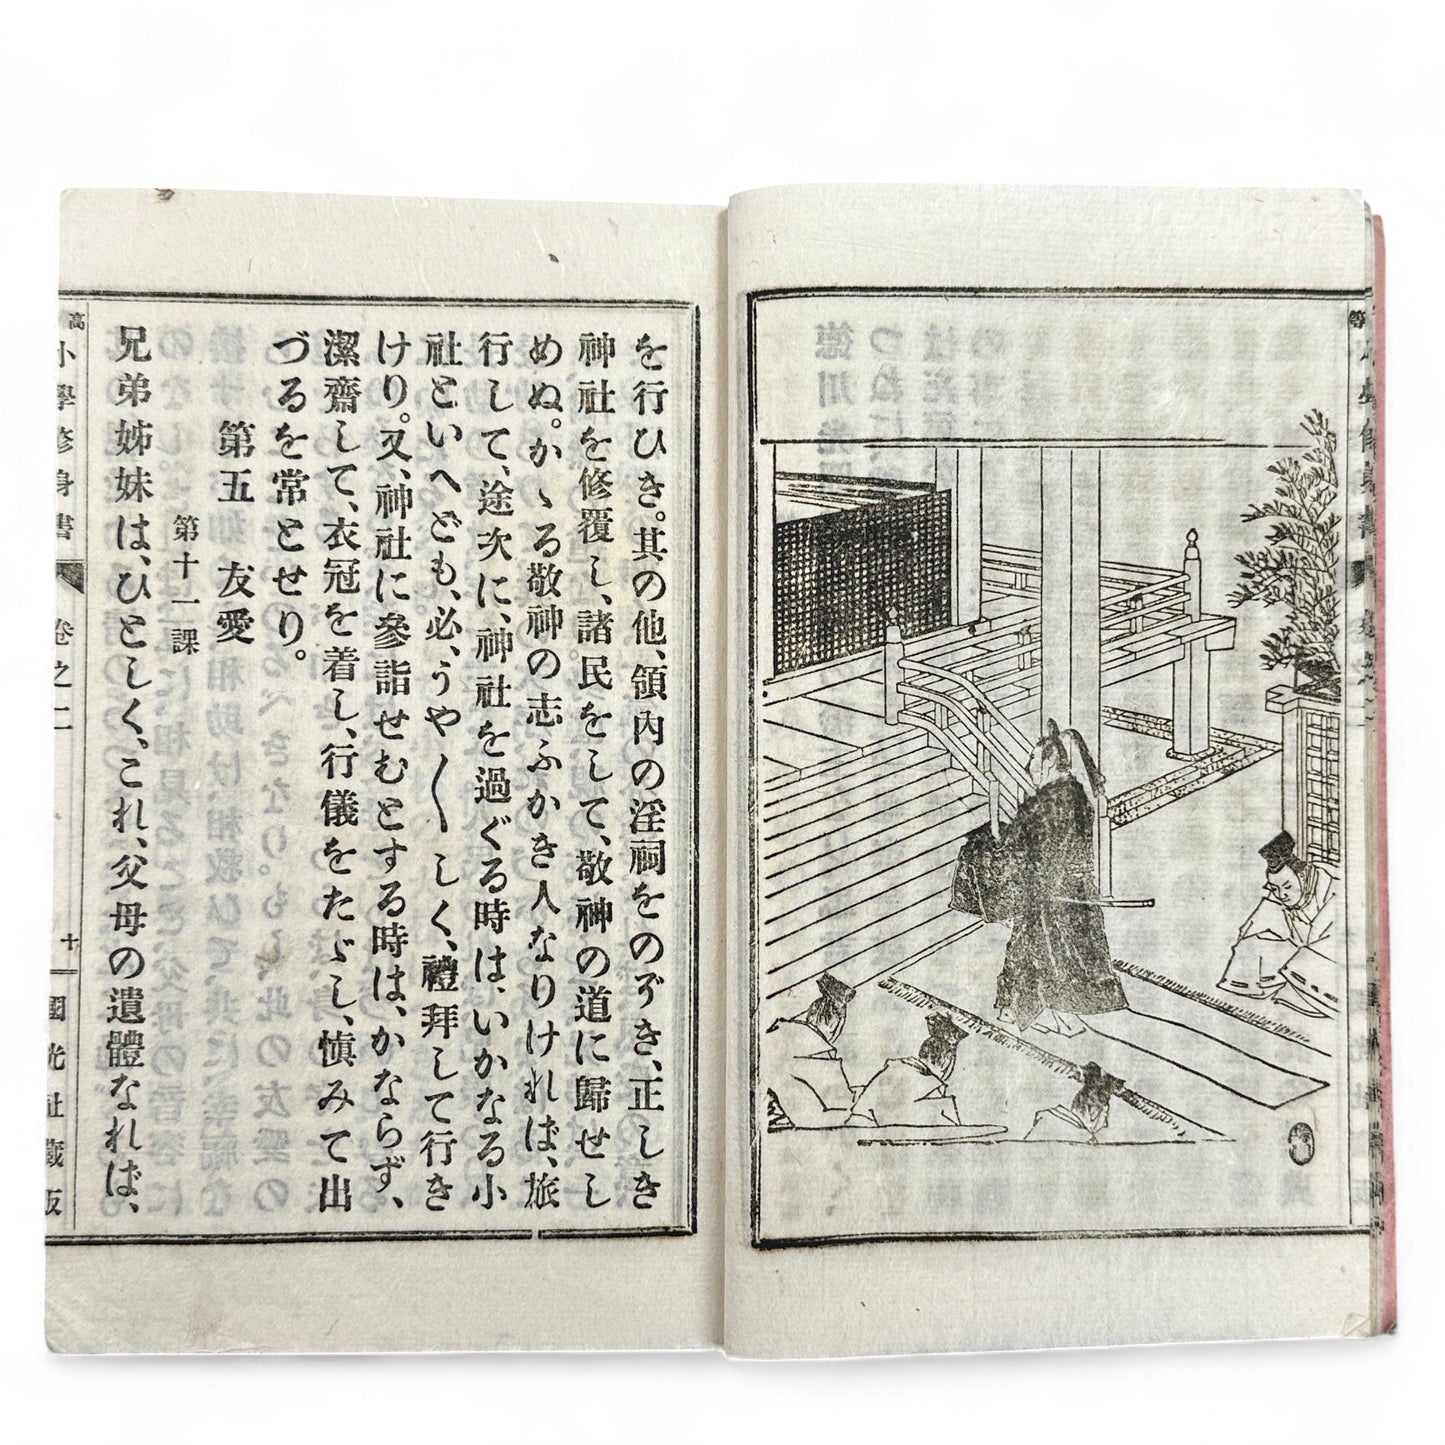 を行ひき。其の他、領內の淫祠をのぞき、正しき
神社を修覆し、諸民をして、敬神の道に歸せし
めぬ。かゝる敬神の志ふかき人なりければ、旅
行して、途次に、神社を過ぐる時は、いかなる小
社といへども、必、うや〱しく、禮拜して行き
けり。又、神社に參詣せむとする時は、かならず、
潔齋して、衣冠を着し、行儀をたゞし、愼みて出
づるを常とせり。
第五 友愛
第十一課
兄弟姊妹は、ひとしく、これ、父母の遺體なれば、
高小學修身書 卷之二 十 國光社藏版